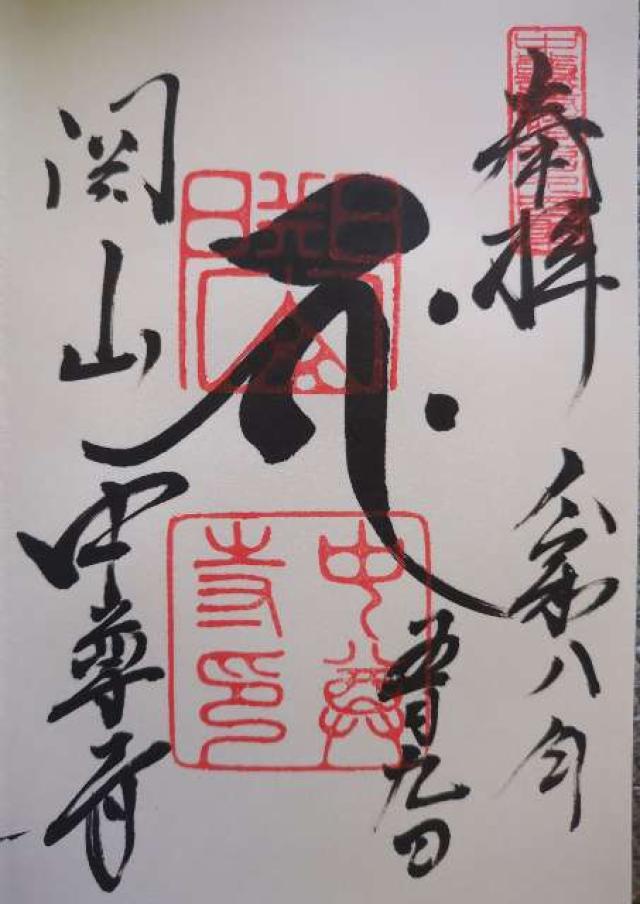 奉拝
令和八年
五月九日
関山
中尊寺
中尊
寺印